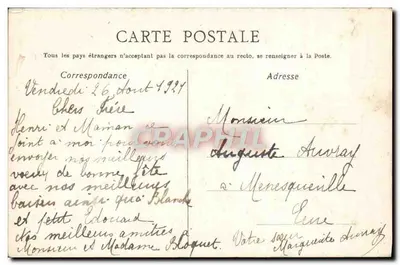 CARTE POSTALE
Tous les pays étrangers n'acceptant pas la correspondance au recto, se renseigner à la Poste.
Correspondance
Adresse
Vendredi 26 Aout 1921
Chers Frère
Henri et Maman se
joint à moi pour vous
envoyer nos meilleurs
voeux de bonne fête
avec nos meilleurs
baisers ainsi qu'à Blanche
et petit Edouard
Nos meilleurs amitiés
Monsieur et Madame Bloquet.
Monsieur
Auguste Auvray
à Menesqueville
Eure
Votre soeur
Marguerite Auvray
CPAPHIL